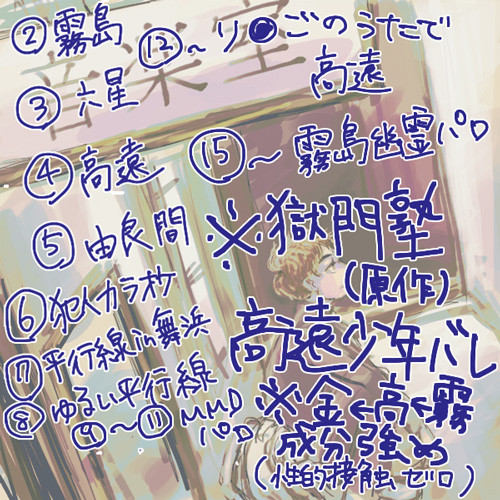 ②霧島
③六星
④高遠
⑤由良間
⑥犯人カラオケ
⑦平行線in舞浜
⑧ゆるい平行線
⑨～⑪MMDパロ
⑫～り●ごのうたで
高遠
⑮～霧島幽霊パロ
※獄門塾
(原作)
高遠少年バレ
※金←高←霧
成分強め
(性的接触ゼロ)
音楽室